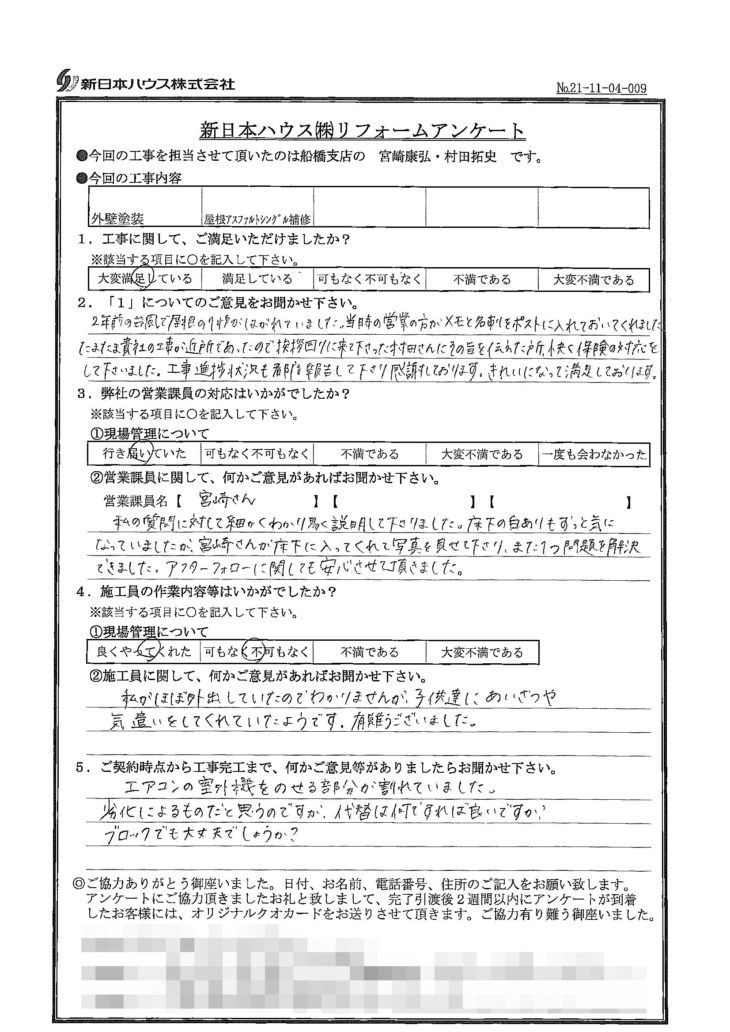 新日本ハウス株式会社
No.21-11-04-009
新日本ハウス㈱リフォームアンケート
●今回の工事を担当させて頂いたのは船橋支店の 宮崎康弘・村田拓史 です。
●今回の工事内容
外壁塗装 屋根ｱｽﾌｧﾙﾄｼﾝｸﾞﾙ補修
1．工事に関して、ご満足いただけましたか？
※該当する項目に○を記入して下さい。
大変満足している 満足している 可もなく不可もなく 不満である 大変不満である
2．「1」についてのご意見をお聞かせ下さい。
2年前の台風で屋根の1枚がはがれていました。当時の営業の方がメモと名刺をポストに入れておいてくれました
たまたま貴社の工事が近所であったので挨拶回りに来て下さった村田さんにその旨を伝えた所、快く保険の対応を
して下さいました。工事進捗状況も都度報告して下さり感謝しております。きれいになって満足しております。
3．弊社の営業課員の対応はいかがでしたか？
※該当する項目に○を記入して下さい。
①現場管理について
行き届いていた 可もなく不可もなく 不満である 大変不満である 一度も会わなかった
②営業課員に関して、何かご意見があればお聞かせ下さい。
営業課員名【 宮崎さん 】【 】【 】
私の質問に対して細かくわかり易く説明して下さりました。床下の白ありもずっと気に
なっていましたが、宮崎さんが床下に入ってくれて写真を見せて下さり、また1つ問題を解決
できました。アフターフォローに関しても安心させて頂きました。
4．施工員の作業内容等はいかがでしたか？
※該当する項目に○を記入して下さい。
①現場管理について
良くやってくれた 可もなく不可もなく 不満である 大変不満である
②施工員に関して、何かご意見があればお聞かせ下さい。
私がほぼ外出していたのでわかりませんが、子供達にあいさつや
気遣いをしてくれていたようです。有難うございました。
5．ご契約時点から工事完工まで、何かご意見等がありましたらお聞かせ下さい。
エアコンの室外機をのせる部分が割れていました。
劣化によるものだと思うのですが、代替は何ですれば良いですか？
ブロックでも大丈夫でしょうか？
◎ご協力ありがとう御座いました。日付、お名前、電話番号、住所のご記入をお願い致します。
アンケートにご協力頂きましたお礼と致しまして、完了引渡後2週間以内にアンケートが到着
したお客様には、オリジナルクオカードをお送りさせて頂きます。ご協力有り難う御座いました。